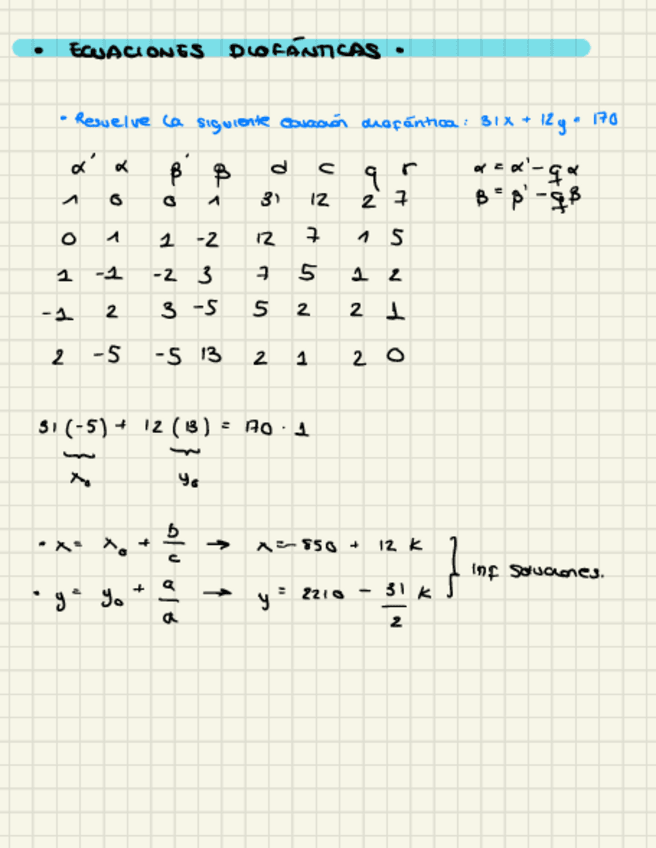 • ECUACIONES DIOFÁNTICAS •
• Resuelve la siguiente ecuación diofántica: 31x + 12y = 170
α' α β' β d c q r α = α' - qα
1 0 0 1 31 12 2 7 β = β' - qβ
0 1 1 -2 12 7 1 5
1 -1 -2 3 7 5 1 2
-1 2 3 -5 5 2 2 1
2 -5 -5 13 2 1 2 0
31 (-5) + 12 (13) = 170 · 1
x₀ y₀
• x = x₀ + b/c → x = -850 + 12 k
• y = y₀ + a/a → y = 2210 - 31/2 k } Inf soluciones.